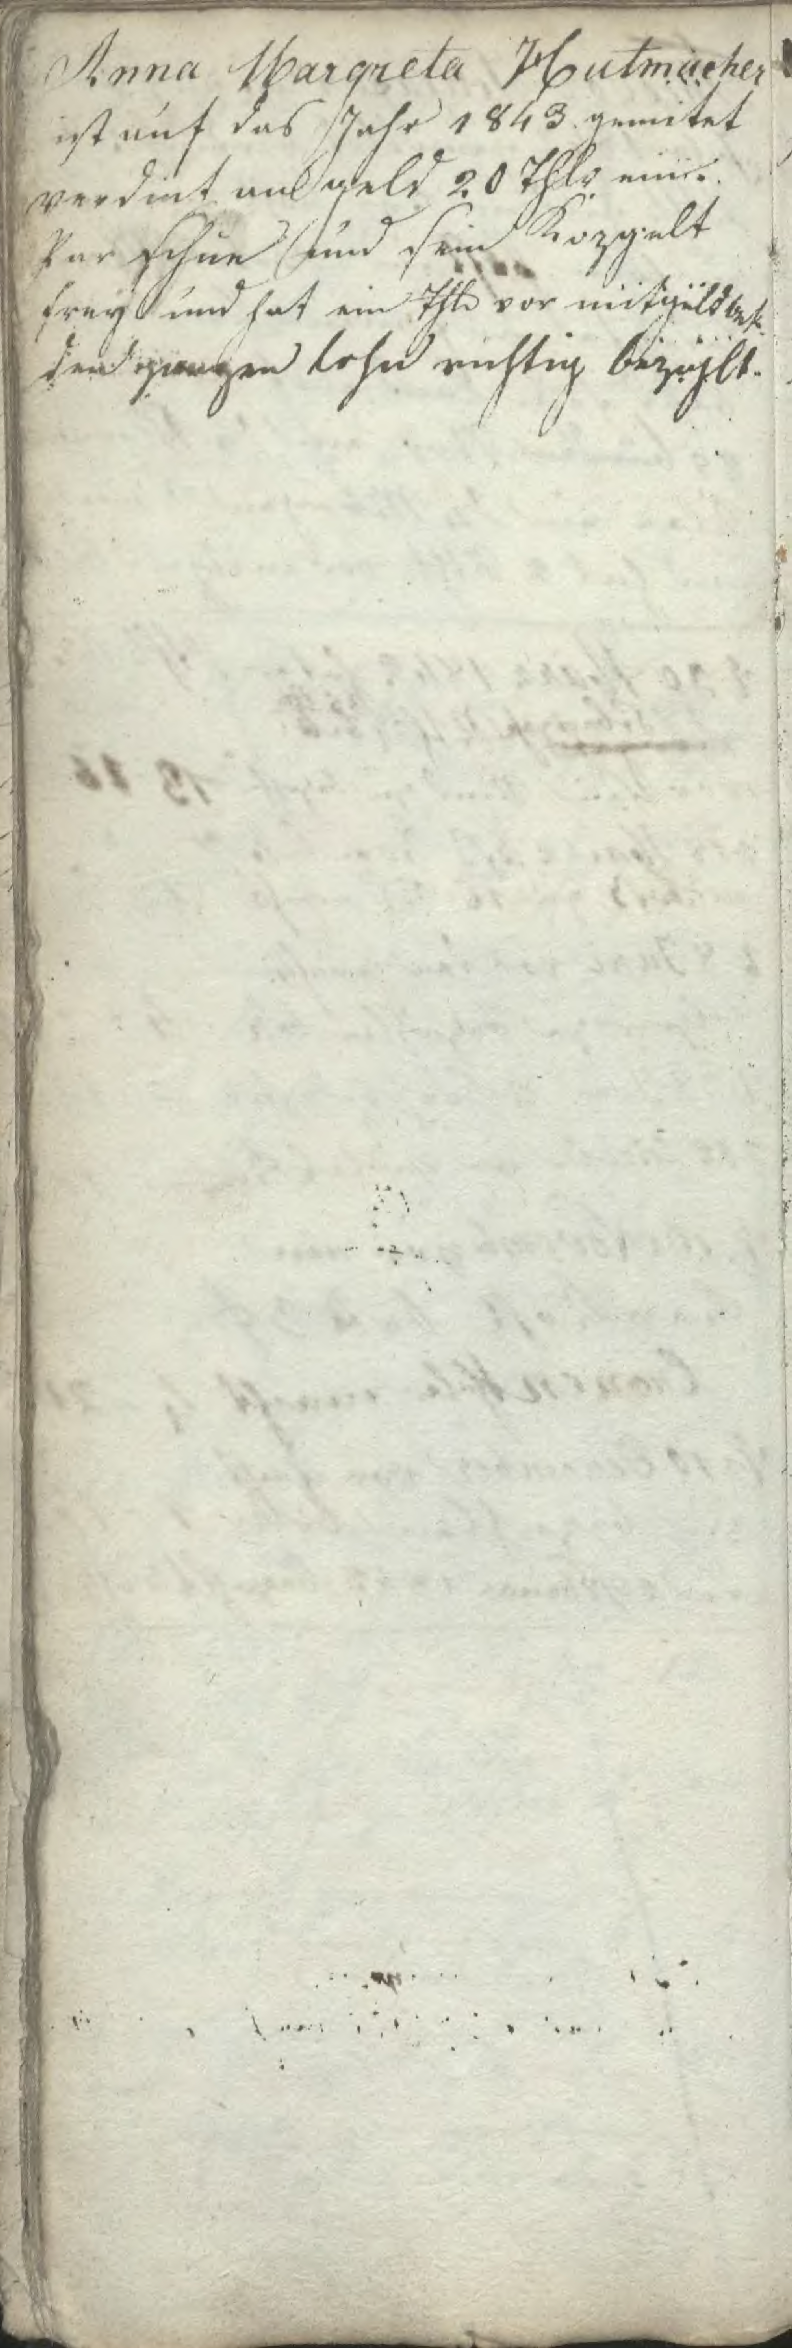 Anna Margreta Hutmacher
ist auf das Jahr 1843 gemitet
verdint an geld 20 Thlr ein
Par schue und sein Kozgelt
frey und hat ein Thlr vor mitgeld bek.
den ganzen lohn richtig bezahlt.